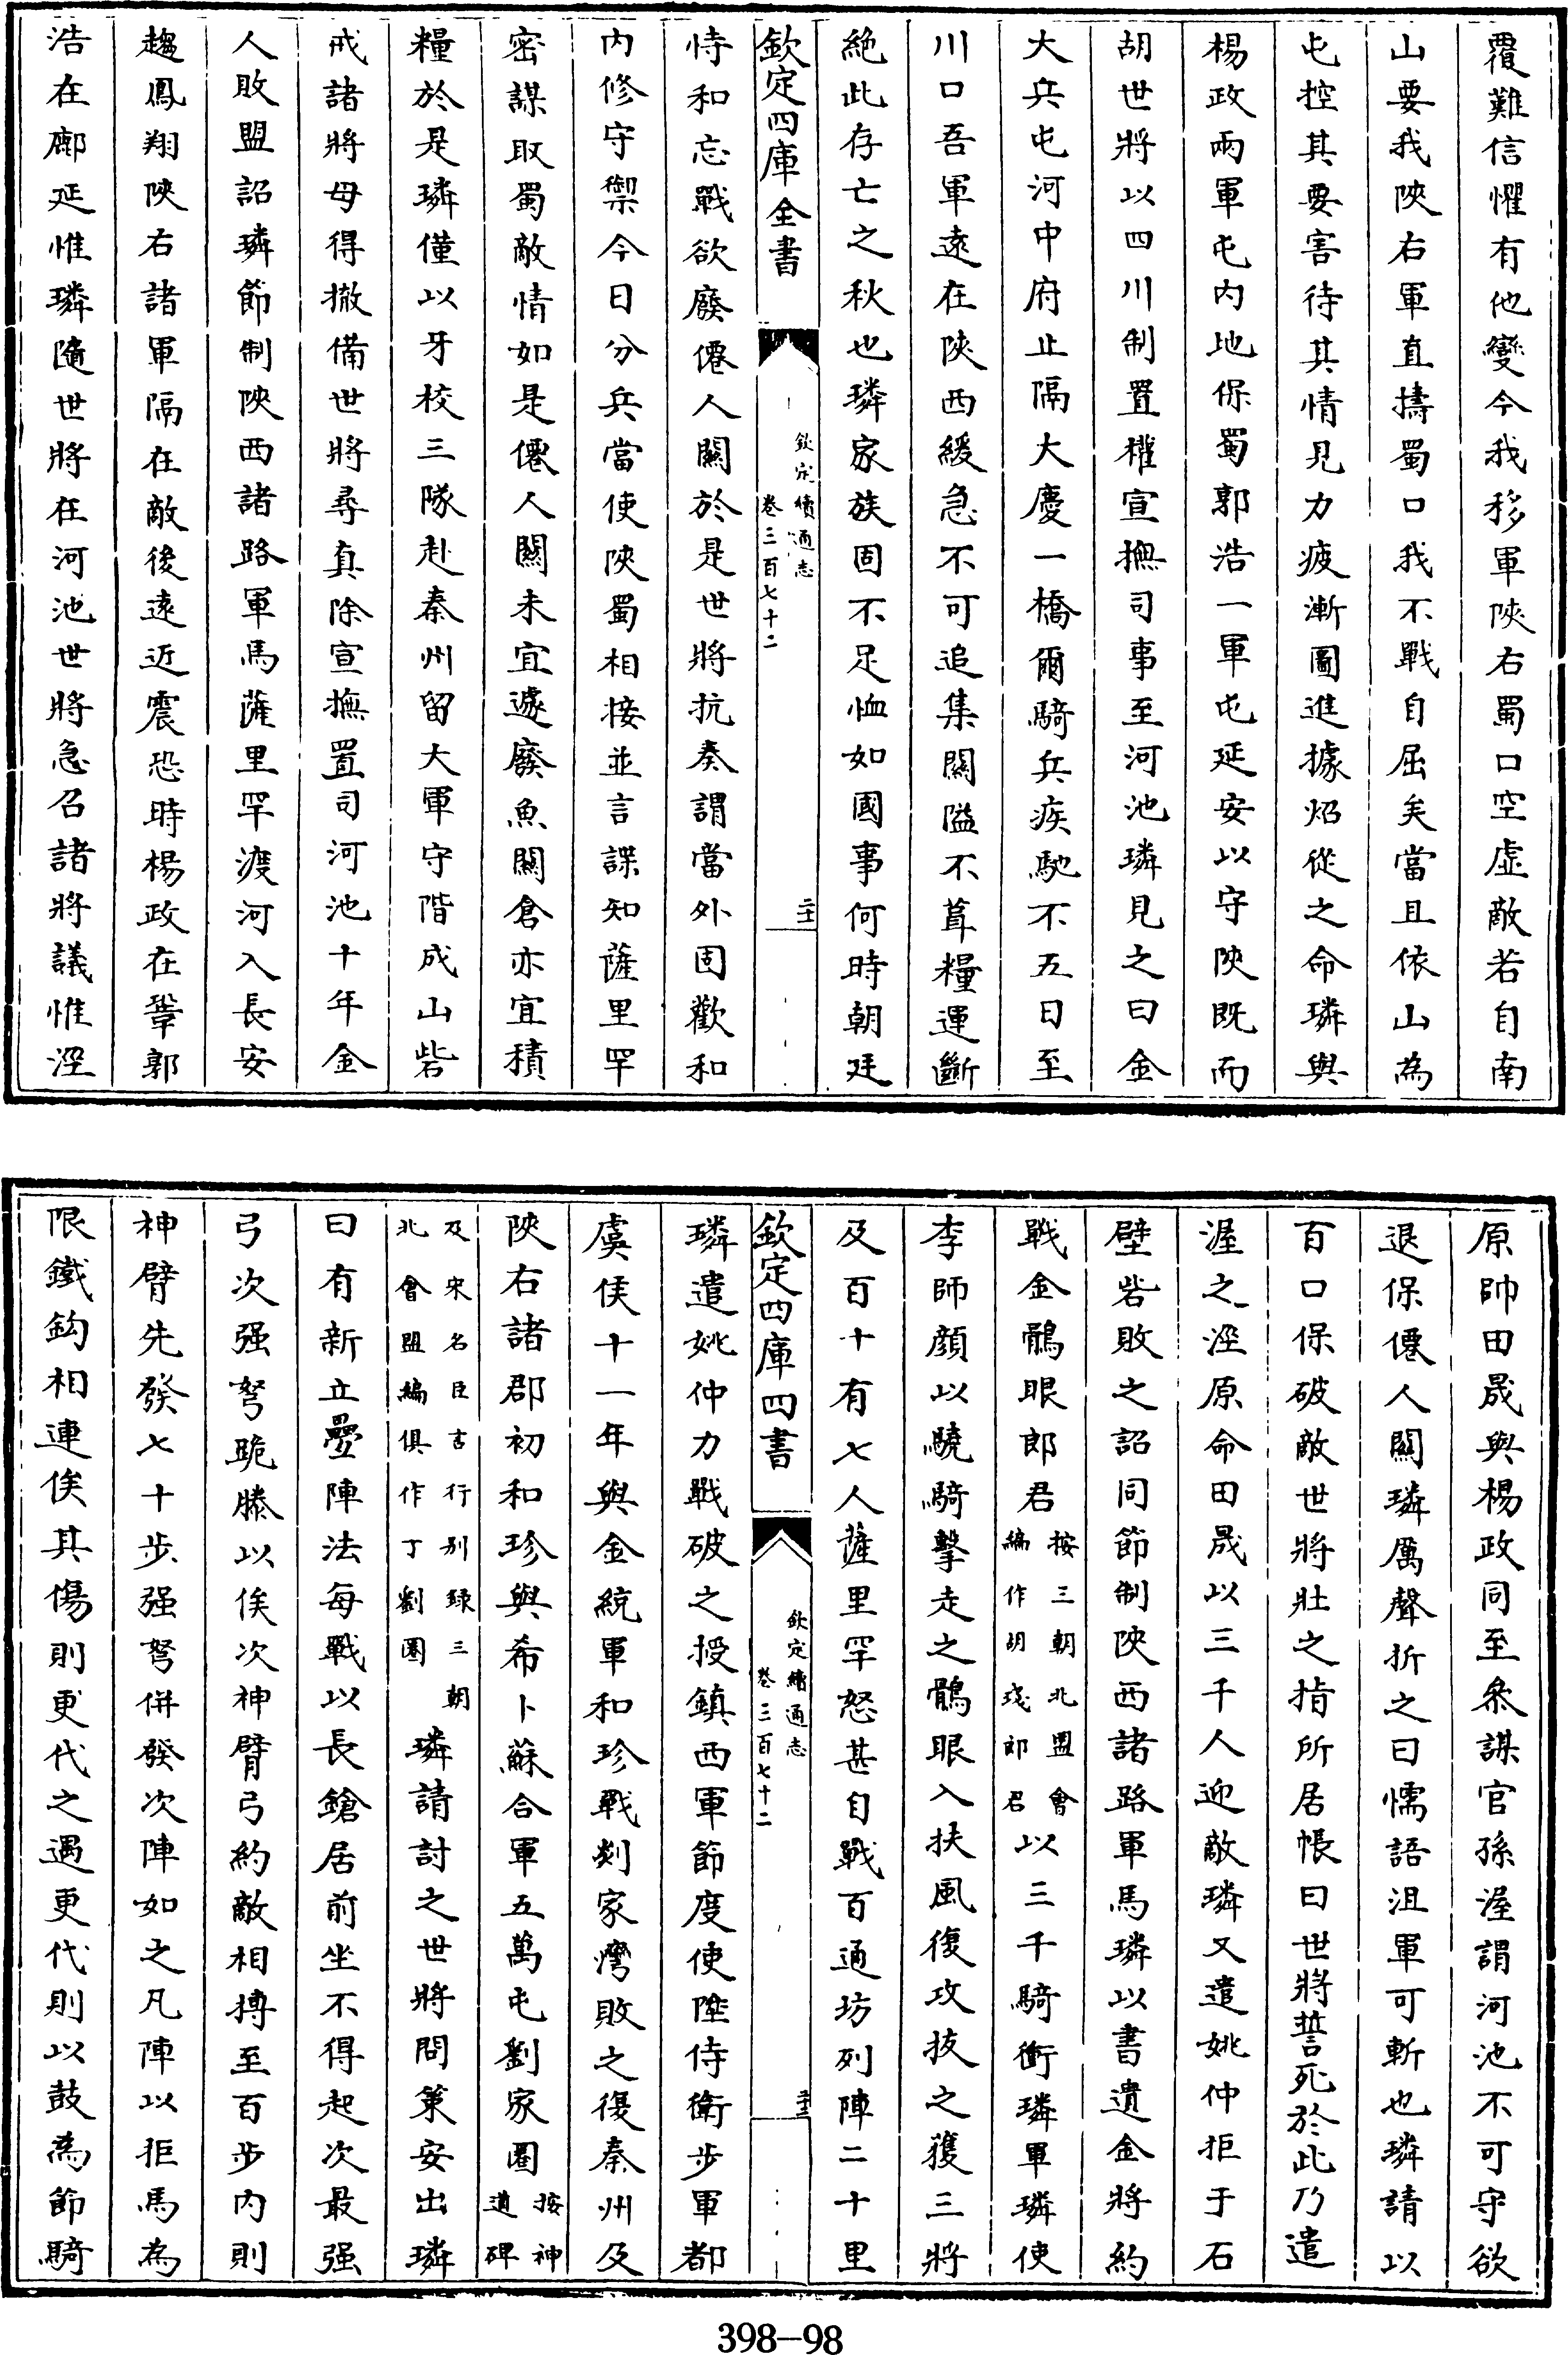 覆難信懼有他變今我移軍陜右蜀口空虛敵若自南
山要我陜右軍直擣蜀口我不戰自屈矣當且依山為
屯控其要害待其情見力疲漸圖進據炤從之命璘與
楊政兩軍屯內地保蜀郭浩一軍屯延安以守陜既而
胡世將以四川制置權宣撫司事至河池璘見之曰金
大兵屯河中府止隔大慶一橋爾騎兵疾馳不五日至
川口吾軍遠在陜西緩急不可追集關隘不葺糧運斷
絶此存亡之秋也璘家族固不足恤如國事何時朝廷
欽定四庫全書
欽定續通志
卷三百七十二
二十一
恃和忘戰欲廢僊人關於是世將抗奏謂當外固歡和
內修守禦今日分兵當使陜蜀相接並言諜知薩里罕
密謀取蜀敵情如是僊人關未宜遽廢魚關倉亦宜積
糧於是璘僅以牙校三隊赴秦州留大軍守階成山砦
戒諸將毋得撤備世將尋真除宣撫置司河池十年金
人敗盟詔璘節制陜西諸路軍馬薩里罕渡河入長安
趨鳳翔陜右諸軍隔在敵後遠近震恐時楊政在鞏郭
浩在鄜延惟璘隨世將在河池世將急召諸將議惟涇
原帥田晟與楊政同至叅謀官孫渥謂河池不可守欲
退保僊人關璘厲聲折之曰懦語沮軍可斬也璘請以
百口保破敵世將壯之指所居帳曰世將誓死於此乃遣
渥之涇原命田晟以三千人迎敵璘又遣姚仲拒于石
壁砦敗之詔同節制陜西諸路軍馬璘以書遺金將約
戰金鶻眼郎君按三朝北盟會編作胡戔郎君以三千騎衝璘軍璘使
李師顏以驍騎擊走之鶻眼入扶風復攻抜之獲三將
及百十有七人薩里罕怒甚自戰百通坊列陣二十里
欽定四庫四書
欽定續通志
卷三百七十二
二十二
璘遣姚仲力戰破之授鎮西軍節度使陞侍衛步軍都
虞侯十一年與金統軍和珍戰剡家灣敗之復秦州及
陜右諸郡初和珍與希卜蘇合軍五萬屯劉家圏按神道碑
及宋名臣言行别録三朝北會盟編俱作丁劉圏璘請討之世將問䇿安出璘
曰有新立疊陣法每戰以長鎗居前坐不得起次最强
弓次强弩跪膝以俟次神臂弓約敵相搏至百步內則
神臂先發七十步强弩併發次陣如之凡陣以拒馬為
限鐵鈎相連俟其傷則更代之遇更代則以鼓為節騎
398-98